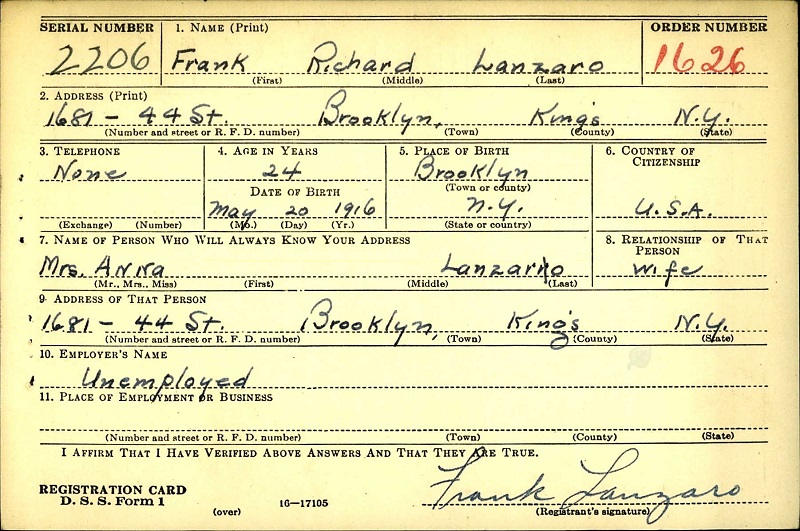 SERIAL NUMBER 1. NAME (Print) ORDER NUMBER
2206 Frank Richard Lanzaro 1626
(First) (Middle) (Last)
2. ADDRESS (Print)
1681 - 44 St. Brooklyn, King's N.Y.
(Number and street or R. F. D. number) (Town) (County) (State)
3. TELEPHONE 4. AGE IN YEARS 5. PLACE OF BIRTH 6. COUNTRY OF CITIZENSHIP
None 24 Brooklyn
DATE OF BIRTH (Town or county)
May 20 1916 N.Y. U.S.A.
(Exchange) (Number) (Mo.) (Day) (Yr.) (State or country)
7. NAME OF PERSON WHO WILL ALWAYS KNOW YOUR ADDRESS 8. RELATIONSHIP OF THAT PERSON
Mrs. Anna Lanzaro wife
(Mr., Mrs., Miss) (First) (Middle) (Last)
9. ADDRESS OF THAT PERSON
1681 - 44 St. Brooklyn, King's N.Y.
(Number and street or R. F. D. number) (Town) (County) (State)
10. EMPLOYER'S NAME
Unemployed
11. PLACE OF EMPLOYMENT OR BUSINESS
(Number and street or R. F. D. number) (Town) (County) (State)
I AFFIRM THAT I HAVE VERIFIED ABOVE ANSWERS AND THAT THEY ARE TRUE.
REGISTRATION CARD Frank Lanzaro
D. S. S. Form 1 (over) 16-17105 (Registrant's signature)